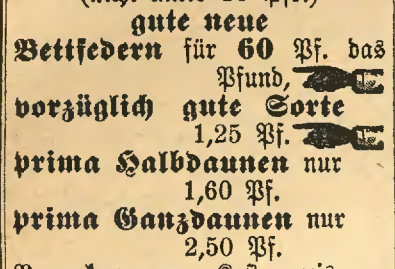 (nicht unter 10 Pfd.)
gute neue
Bettfedern für 60 Pf. das
Pfund,
vorzüglich gute Sorte
1,25 Pf.
prima Halbdaunen nur
1,60 Pf.
prima Ganzdaunen nur
2,50 Pf.